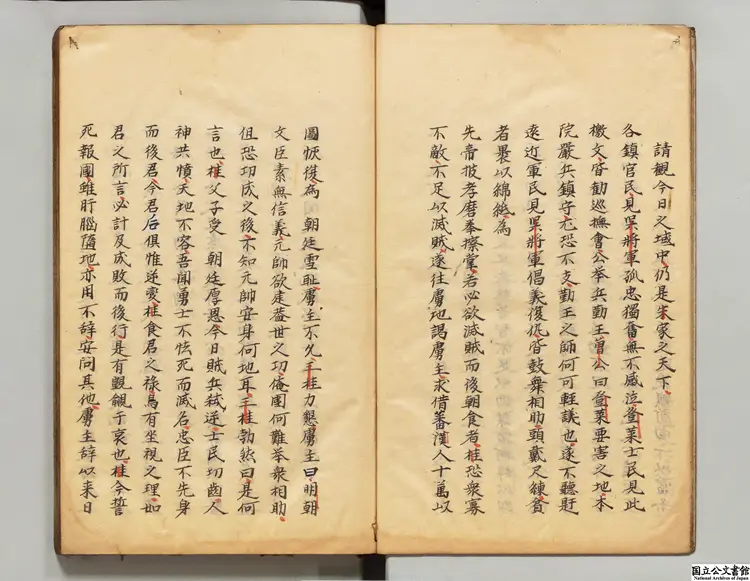 請觀今日之域中仍是朱家之天下
各鎮官民見吴將軍孤忠獨奮無不感泣登萊士民見此
檄文皆勸巡撫會公举兵勤王曾公曰登萊要害之地本
院嚴兵鎮守尤恐不支勤王之師何可輕議也遂不聽盱
遠近軍民見吴將軍倡義復仇皆鼓舞相助頭戴尺練貧
者畏以綿縋為
先帝披孝磨拳擦掌若必欲滅賊而後朝食者桂恐衆寡
不敵不足以滅賊遂往虜地謁虜主求借蕃漢人十萬以
圖恢復為 朝廷雪耻虜主不允三桂力懇虜主曰明朝
文臣素無信義元帥欲建蓋世之功俺国何難举衆相助
但恐功成之後不知元帥安身何地耳三桂勃然曰是何
言也桂父子受 朝廷厚恩今日賊兵弑逆士民切齒人
神共憤天地不容吾聞勇士不怯死而滅名忠臣不先身
而後君今君后俱惟逆变桂食君之祿焉有坐視之理如
君之所言必計及成敗而後行是有覬覦于衷也桂今誓
死報國雖肝腦隨地亦用不辞安問其他虜主辞以来日
国立公文書館
National Archives of Japan